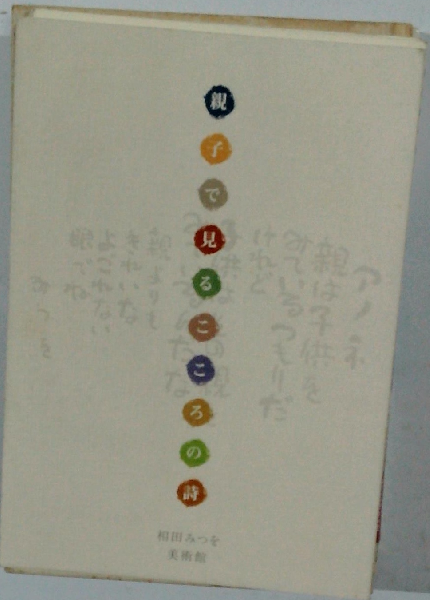 親子で見るこころの詩
アノネ
親は子供を
みているつもりだ
けれど
子供は 親
いるんだな
親よりも
きれいな
よごれない
眼でね
みつを
相田みつを
美術館